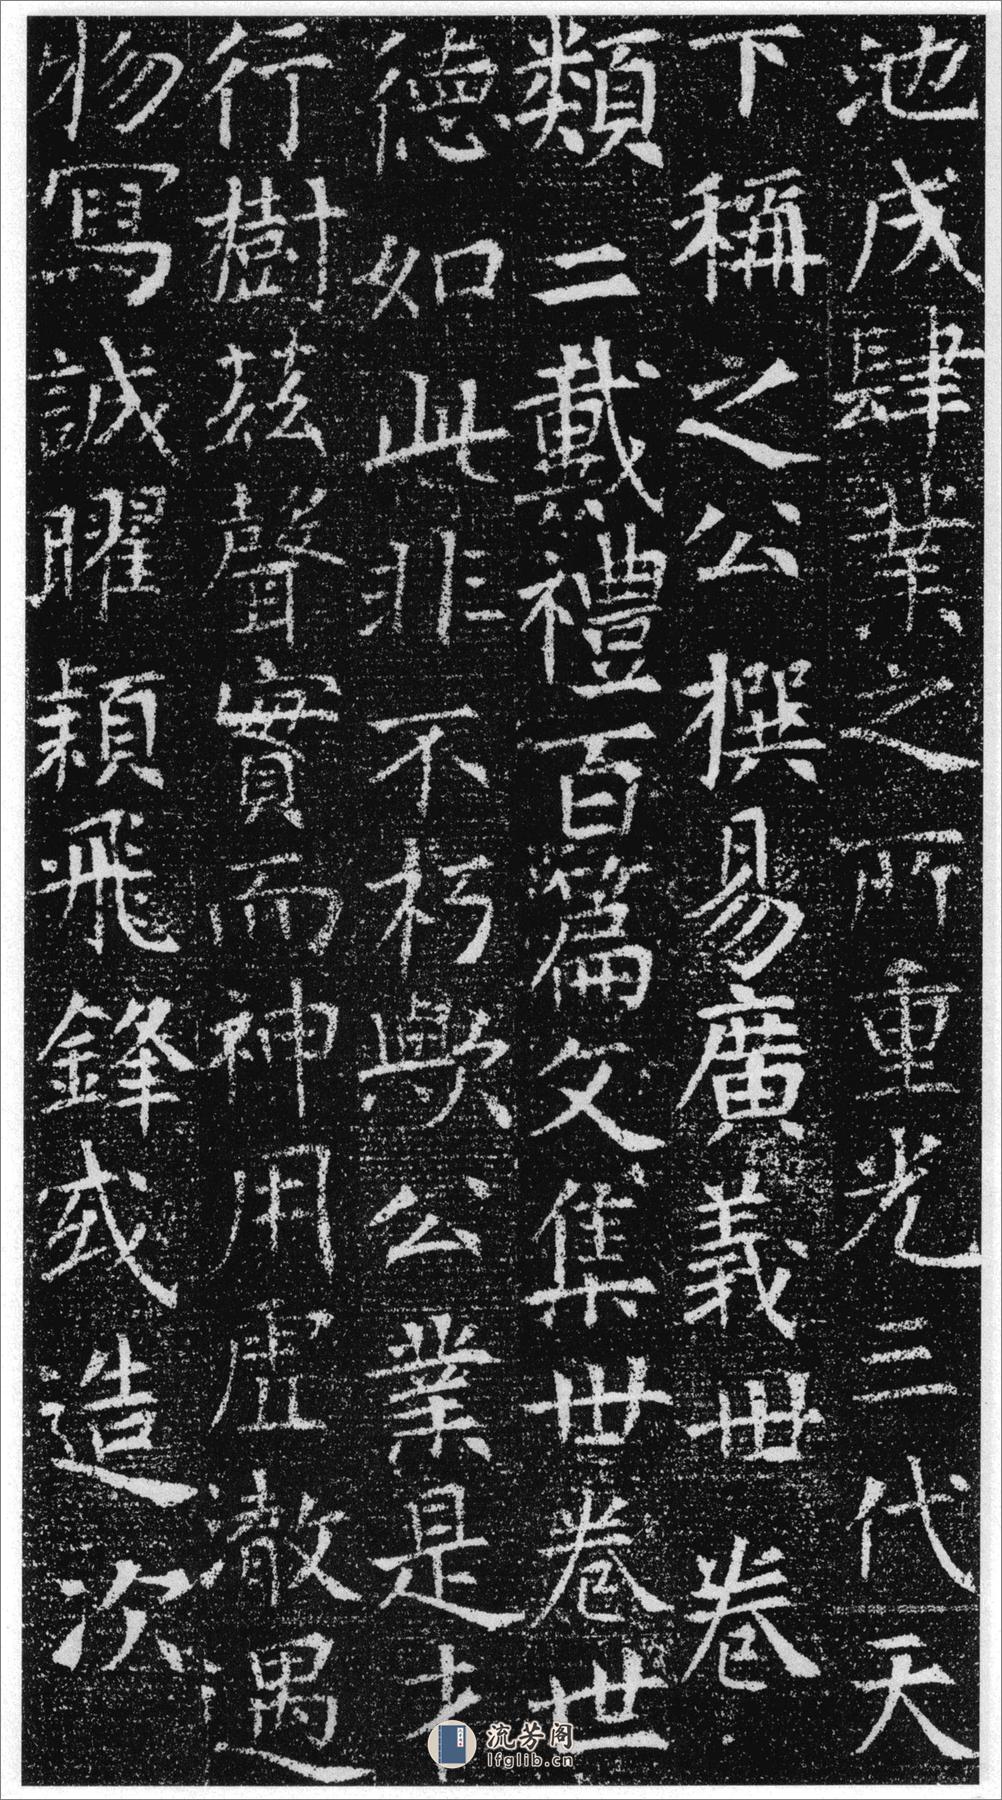 池戌肆業之所重光三代天
下稱之公撰易廣義卌卷
類二戴禮百篇文集卅卷世
德如此非不朽歟公業是才
行樹茲聲實而神用虛澈遇
物寫誠曜穎飛鋒或造次
流芳阁
lfglib.cn